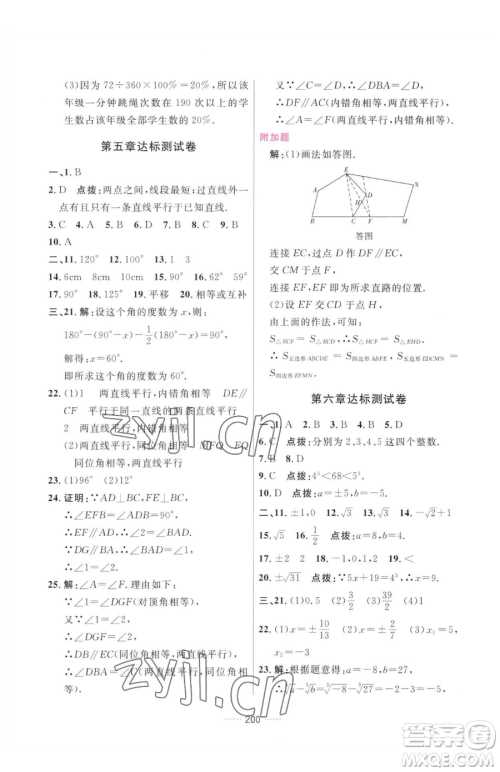 (3)因为 72÷360×100%=20%,所以该
年级一分钟跳绳次数在 190 次以上的学
生数占该年级全部学生数的 20%.
第五章达标测试卷
一、1. B
2. D 点拨:两点之间,线段最短,过直线
外一点有且只有一条直线平行于已知直线.
3. C 4. A 5. B 6. D 7. B 8. C 9. B
10. A
二、11. 120° 12. 110° 13. 1 3
14. 6cm 8cm 10cm 15. 130° 16. 62 59°
17. 90° 18. 125° 19. 平移 20. 相等或互补
三、21. 解:设这个角的度数为 x,则:
180°-(90°-x)-1/2(180°-x)=90°,
解得:x=60°.
即所求这个角的度数为 60°.
22. (1)两直线平行,内错角相等 DE∥
CF 平行于同一直线的两条直线平行
2 两直线平行,内错角相等
(2)两直线平行,同位角相等 MFQ EQ
同位角相等,两直线平行
23. (1)96° (2)12°
24. 证明:∵AD⊥BC,FE⊥BC,
∴∠EFB=∠ADB=90°,
∴EF∥AD,∴∠2=∠BAD.
∵DG∥BA,∴∠1=∠BAD,
∴∠1=∠2.
25. 解:∠A=∠F.理由如下:
∵∠1=∠DGF(对顶角相等),
又∵∠1=∠2,
∴∠DGF=∠2,
∴DB∥EC(同位角相等,两直线平行),
∴∠DBA=∠C(两直线平行,同位角相
等).
又∵∠C=∠D,∴∠DBA=∠D,
∴DF∥AC(内错角相等,两直线平行),
∴∠A=∠F(两直线平行,内错角相等).
附加题
解:(1)画法如答图.
E
A
D
N
H
B C F M
答图
连接 EC,过点 D 作 DF∥EC,
交 CM 于点 F,
连接 EF,EF 即为所求直路的位置.
(2)设 EF 交 CD 于点 H,
由上面的作法,可知
S△ECF=S△ECD,∴S△HCF=S△EHD,
∴S五边形ABCDE=S四边形ABFE,S五边形EDCMN
=S四边形EFMN.
第六章达标测试卷
一、1. A 2. B 3. D 4. C 5. A
6. C 点拨:分别为 2,3,4,5 四个整数.
7. B 8. D
9. C 点拨:4³<68<5³.
10. D 点拨:a=±5,b=-5.
二、11. ±9 12. 4 13. -4 14. -√2+1
15. √5 16. 1/2 点拨:a=4,b=-2.
17. ±2 2 18. -6 19. <
20. ±√31 点拨:∵5x+19=4³,∴x=9.
三、21. (1)0.5 (2)3/2 (3)6 (4)1
22. (1)x=±10/13 (2)x=±2/7 (3)x₁=5,
x₂=-9
23. 解:根据题意得:
√a-³√a-³√b=³√8-³√27=-2-
zyjl.cn
zyjl.cn
200